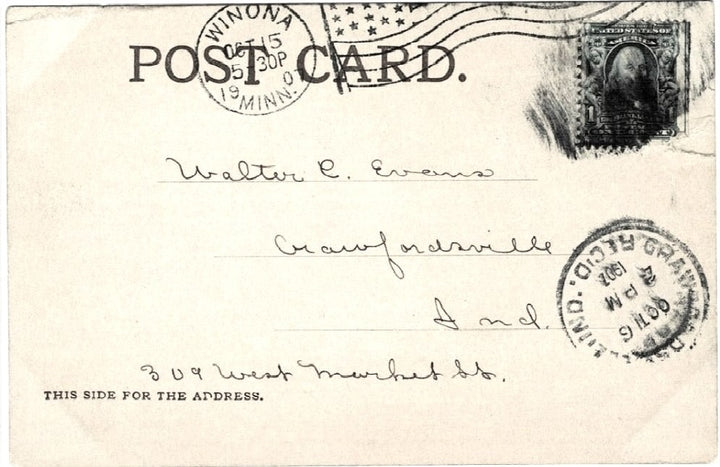 WINONA
OCT 15
5 30P
19 0
MINN.
UNITED STATES OF
1 1
POST CARD.
Walter C. Evans
Crawfordsville
Ind.
309 West Market St.
REC'D.
OCT 16
PM
1907
IND.
THIS SIDE FOR THE ADDRESS.